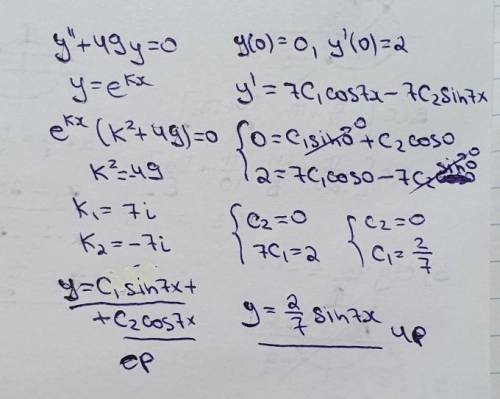 y''+49y=0
y=e^{kx}
e^{kx}(k²+49)=0
k²=-49
k₁=7i
k₂=-7i
y=C₁sin7x+
+C₂cos7x
y(0)=0, y'(0)=2
y'=7C₁cos7x-7C₂sin7x
{0=C₁sin0⁰+C₂cos0
2=7C₁cos0-7C₂sin0⁰
{C₂=0 {C₂=0
7C₁=2 C₁=2/7
y=2/7 sin7x чр